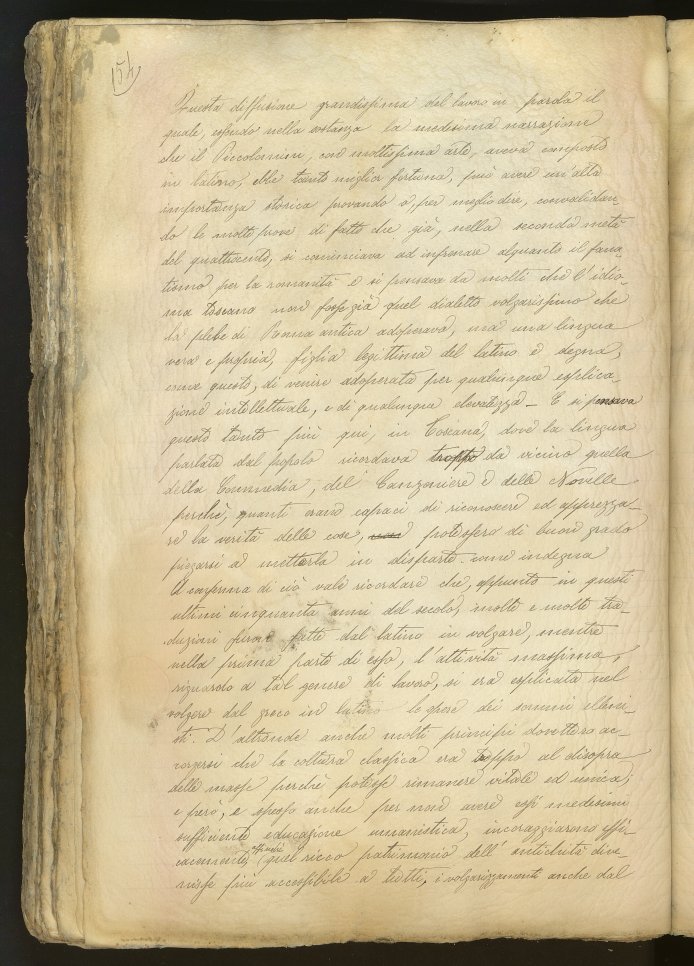 154
Questa diffusione grandissima del lavoro in parola il
quale, essendo nella sostanza la medesima narrazione
che il Piccolomini, con moltissima arte, aveva composto
in latino, ebbe tanto miglior fortuna, può avere un'alta
importanza storica provando o, per meglio dire, convalidan-
do le molte prove di fatto che già, nella seconda metà
del quattrocento, si cominciava ad infrenare alquanto il fana-
tismo per la romanità e si pensava da molti che l'idio-
ma toscano non fosse già quel dialetto volgarissimo che
la plebe di Roma antica adoperava, ma una lingua
vera e propria, figlia legittima del latino e degna,
come questo, di venire adoperata per qualunque esplica-
zione intellettuale, e di qualunque elevatezza – E si pensava
questo tanto più qui, in Toscana, dove la lingua
parlata dal popolo ricordava troppo da vicino quella
della Commedia, del Canzoniere e delle Novelle
perchè, quanti erano capaci di riconoscere ed apprezza-
re la verità delle cose, potessero di buon grado
piegarsi a metterla in disparte come indegna
A conferma di ciò vale ricordare che, appunto in questi
ultimi cinquanta anni del secolo, molte e molte tra-
duzioni furono fatte dal latino in volgare, mentre
nella prima parte di esso, l'attività massima,
riguardo a tal genere di lavoro, si era esplicata nel
volgere dal greco in latino le opere dei sommi elleni-
sti. D'altronde anche molti principi dovettero ac-
corgersi che la coltura classica era troppo al disopra
delle masse perchè potesse rimanere vitale ed unica;
e però, e spesso anche per non avere essi medesimi
sufficiente educazione umanistica, incoraggiarono effi-
cacemente, affinchè quel ricco patrimonio dell'antichità dive-
nisse più accessibile a tutti, i volgarizzamenti anche dal